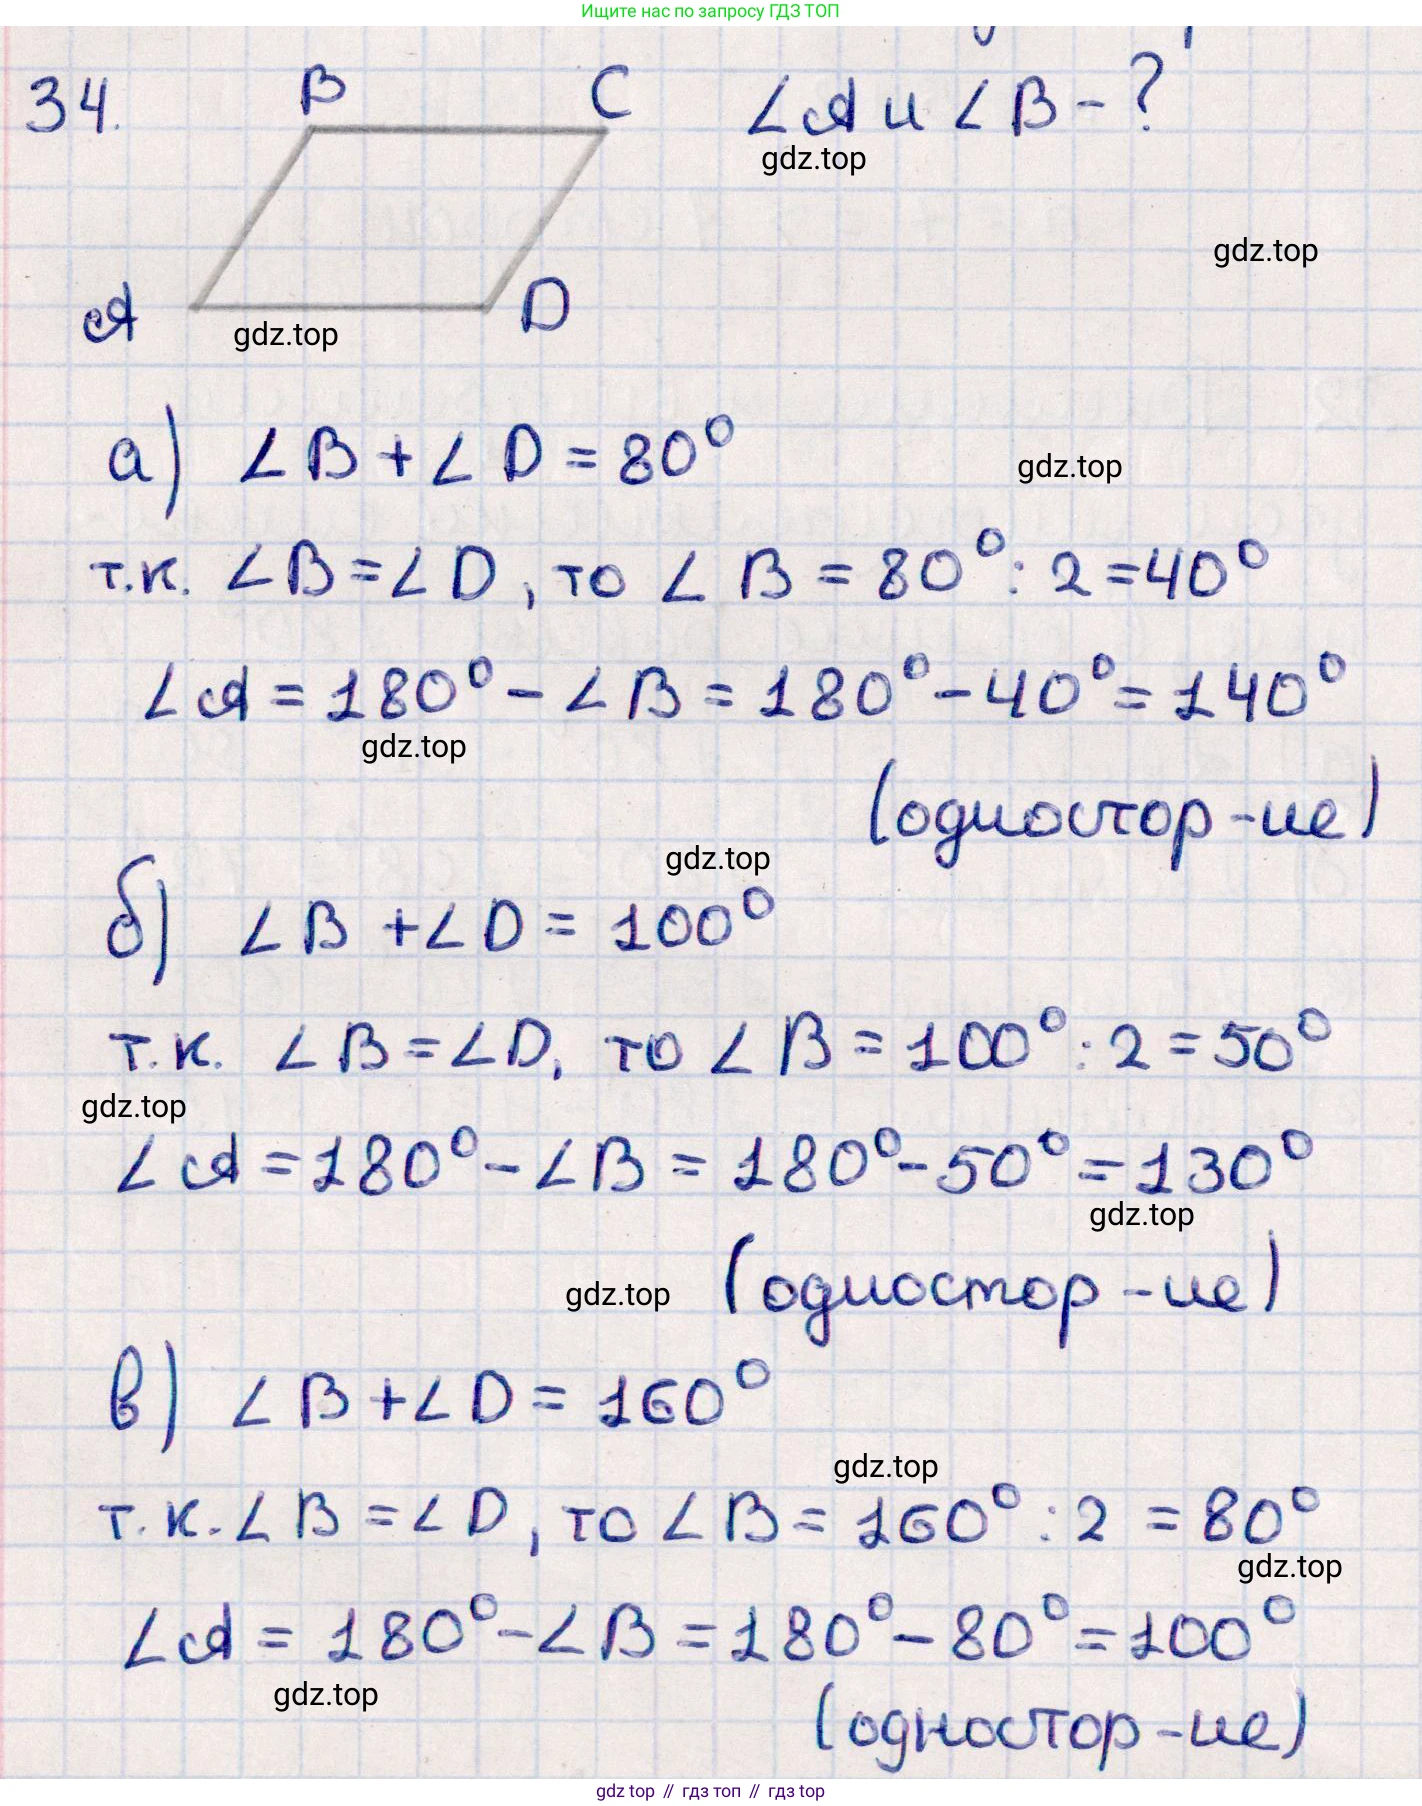 Ищите нас по запросу ГДЗ ТОП
34. B C ∠A и ∠B - ?
gdz.top
gdz.top
A D
gdz.top
а) ∠B + ∠D = 80°
gdz.top
т.к. ∠B = ∠D, то ∠B = 80° : 2 = 40°
∠A = 180° - ∠B = 180° - 40° = 140°
gdz.top
(одностор-ие)
gdz.top
б) ∠B + ∠D = 100°
т.к. ∠B = ∠D, то ∠B = 100° : 2 = 50°
gdz.top
∠A = 180° - ∠B = 180° - 50° = 130°
gdz.top
gdz.top (одностор-ие)
в) ∠B + ∠D = 160°
gdz.top
т.к. ∠B = ∠D, то ∠B = 160° : 2 = 80°
gdz.top
∠A = 180° - ∠B = 180° - 80° = 100°
gdz.top
(одностор-ие)
gdz top // гдз топ // gdz top